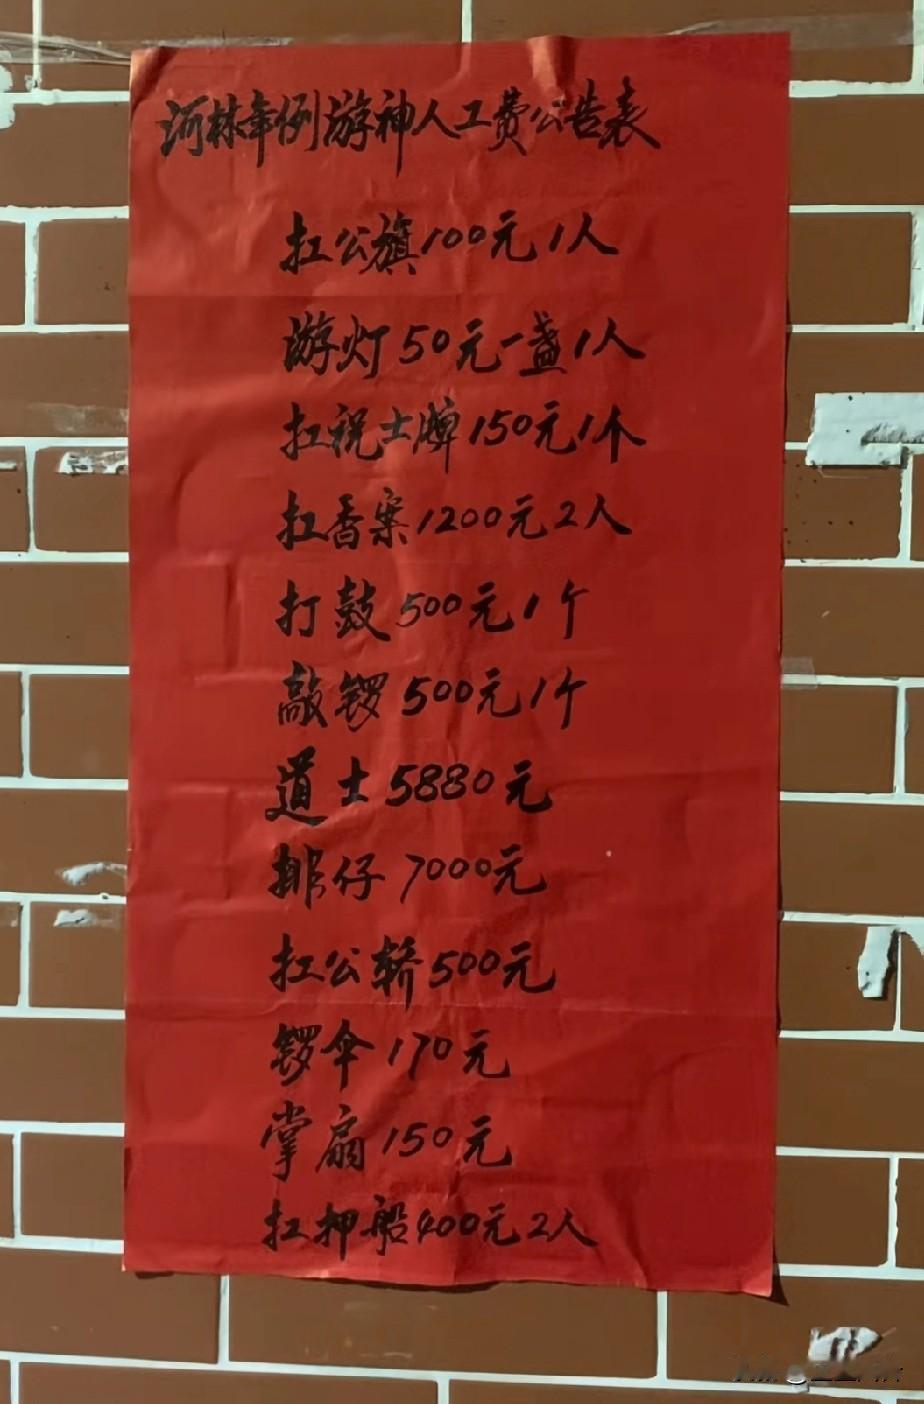 河林年例游神人工费公告表
扛公旗100元1人
游灯50元一盏1人
扛祝士牌150元1个
扛香案1200元2人
打鼓500元1个
敲锣500元1个
道士5880元
排仔7000元
扛公轿500元
锣伞170元
掌扇150元
扛押船400元2人